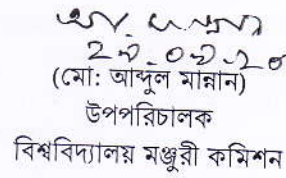 (মো: আব্দুল মান্নান)
উপপরিচালক
বিশ্ববিদ্যালয় মঞ্জুরী কমিশন